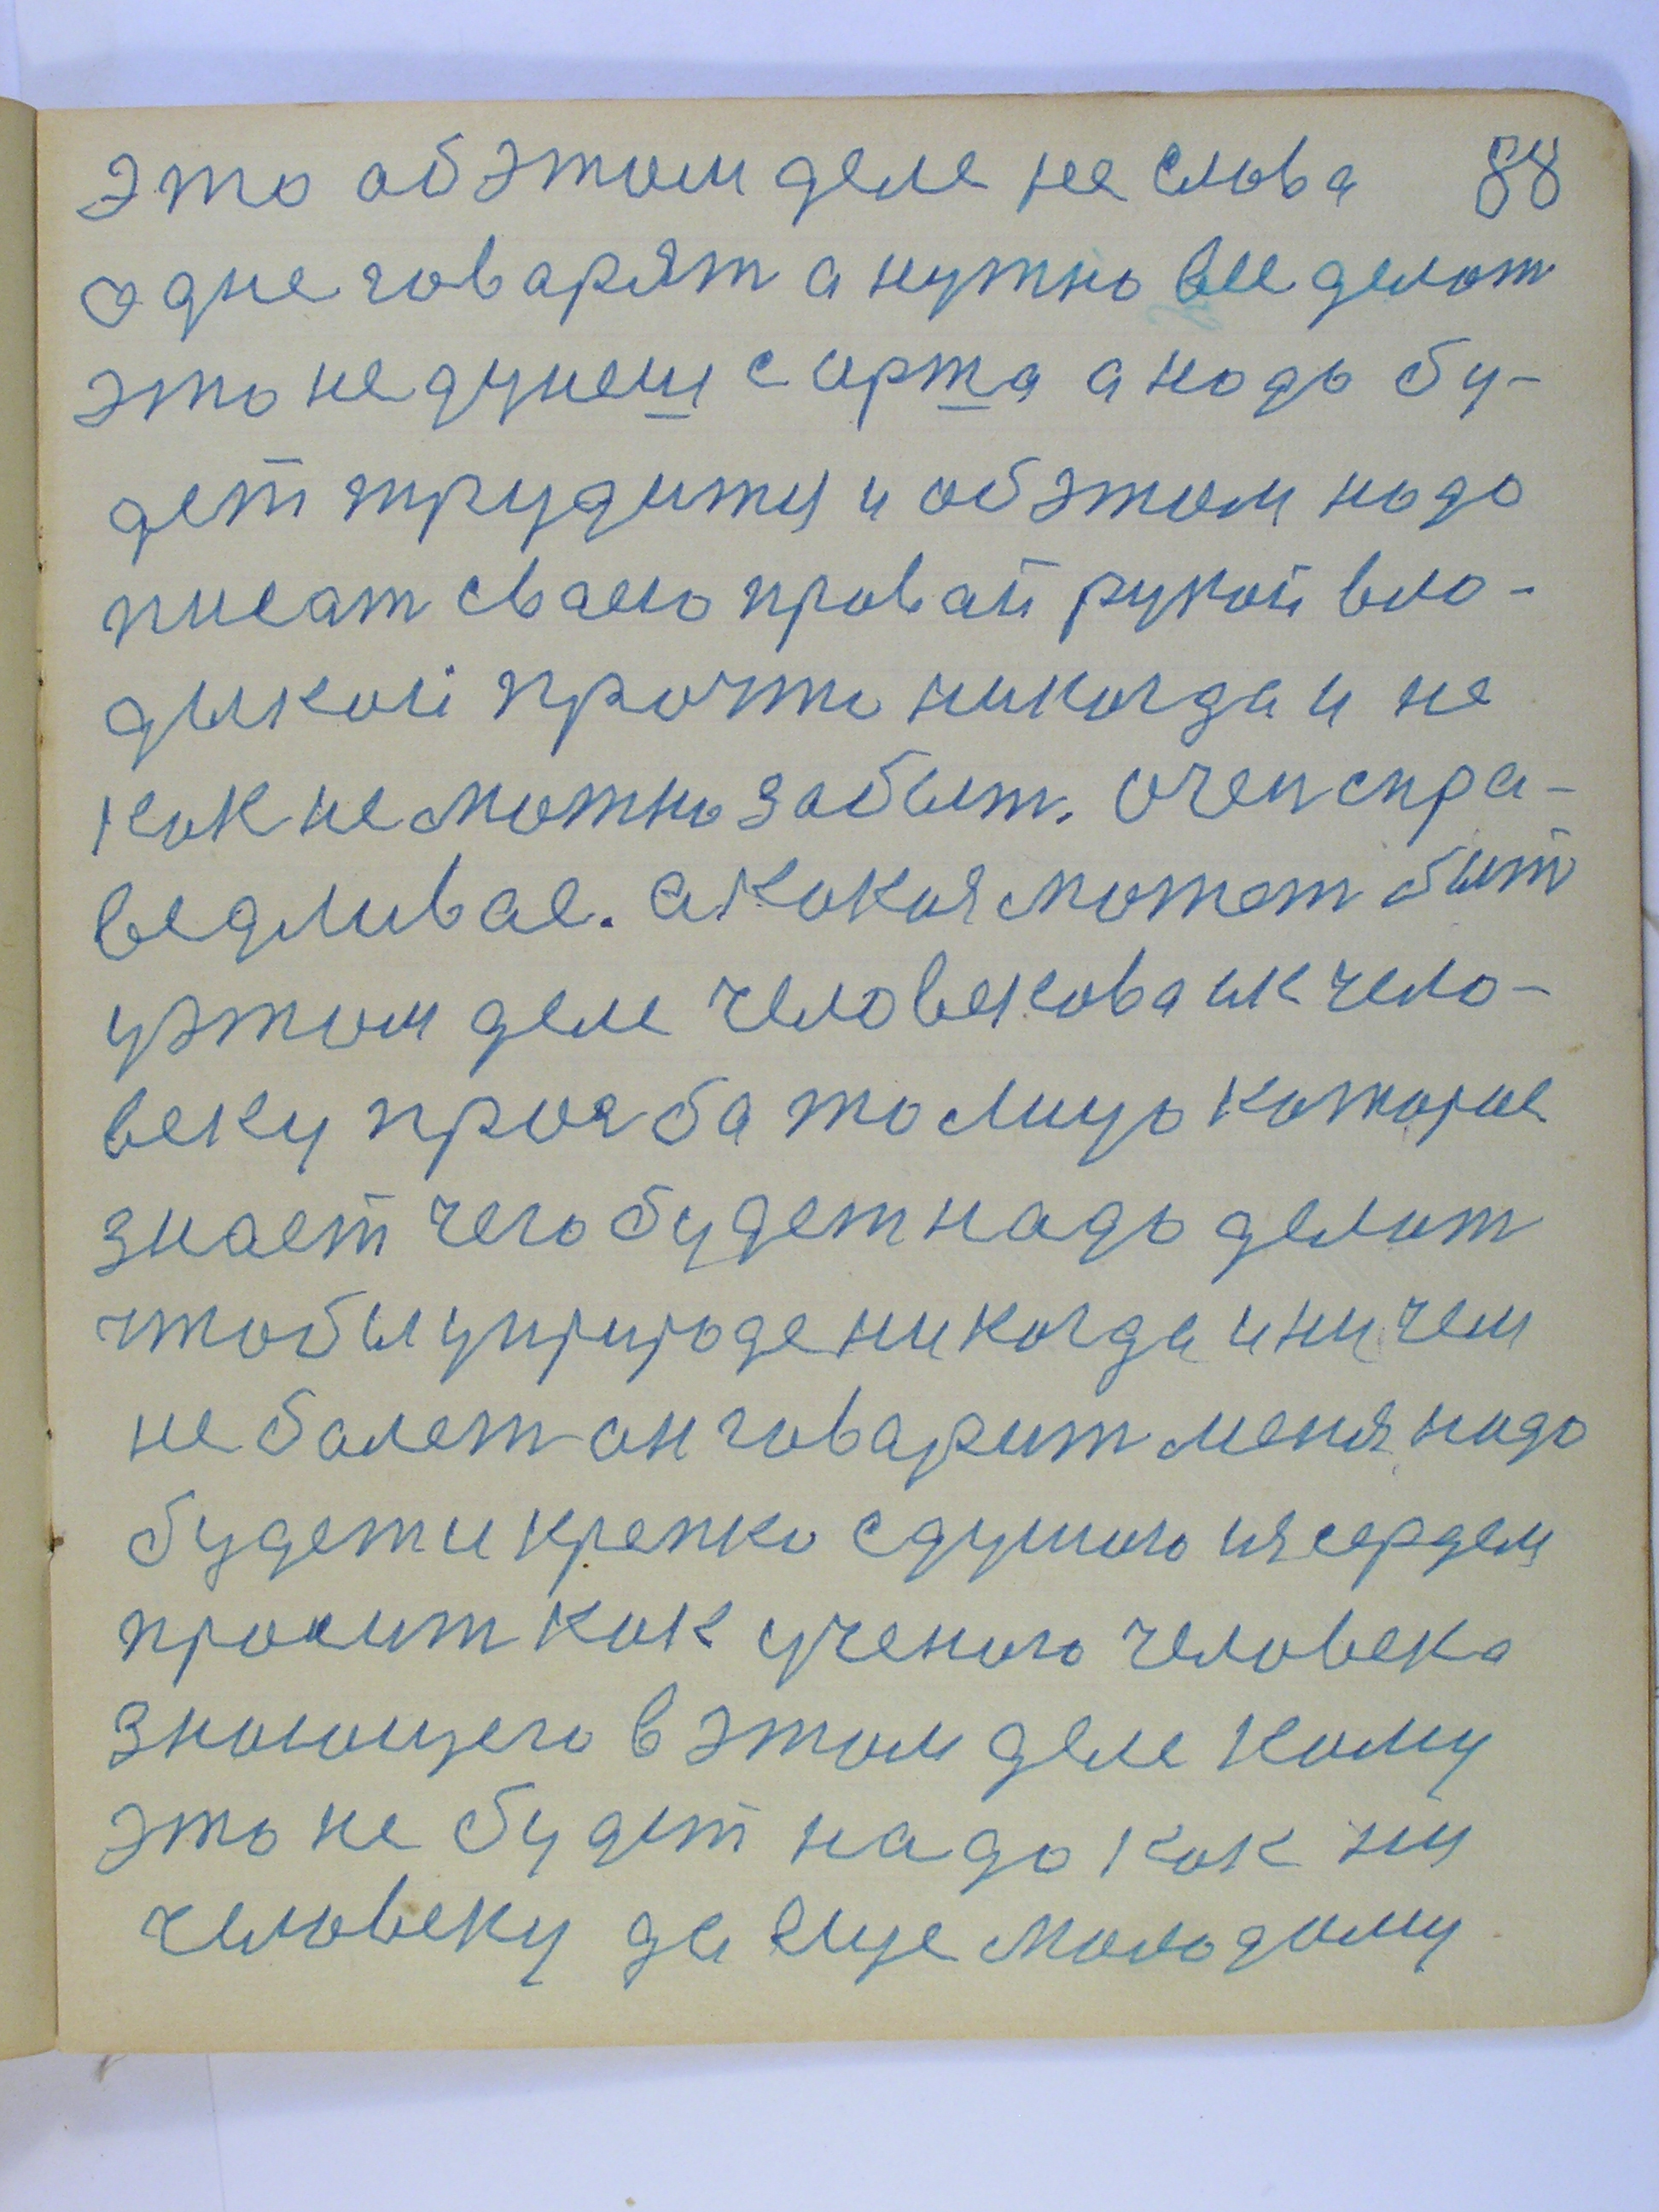 это об этом деле не слова 88
одне говарят а нужно все делат
это не дунеш с ирта а надо бу-
дет трудитя и об этом надо
писат сваею правай рукой вла-
дыкой прочто никогда и не
как не можно забыт. Очен спра-
ведливае. а какоя может быт
у этом деле человекова и к чело-
веку прозба то лицо каторое
знает чего будет надо делат
чтобы у природе никогда и ни чем
не болет он говарит меня надо
будет и крепко с душою и сердем
просит как ученого человека
знающего в этом деле кому
это не будет надо как ни
человеку да еще молодому